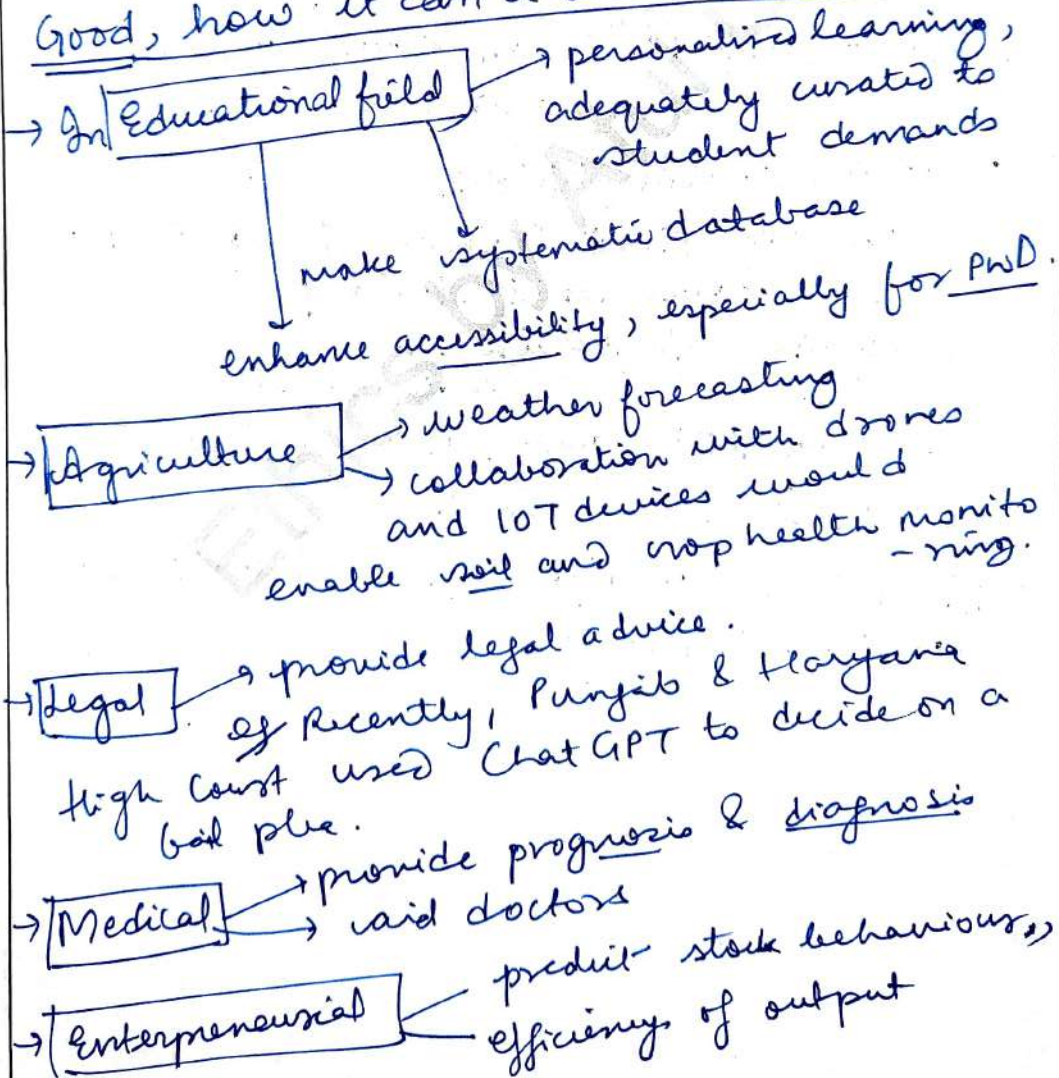 Good, how it can
→ In Educational field → personalised learning,
adequately curated to
student demands
make systematic database
enhance accessibility, especially for PwD.
→ Agriculture → weather forecasting
→ collaboration with drones
and IOT devices would
enable soil and crop health monito
-ring.
→ Legal → provide legal advice.
eg Recently, Punjab & Haryana
High Court used ChatGPT to decide on a
bail plea.
→ Medical → provide prognosis & diagnosis
→ aid doctors
→ Enterpreneurial predict stock behaviour,
efficiency of output